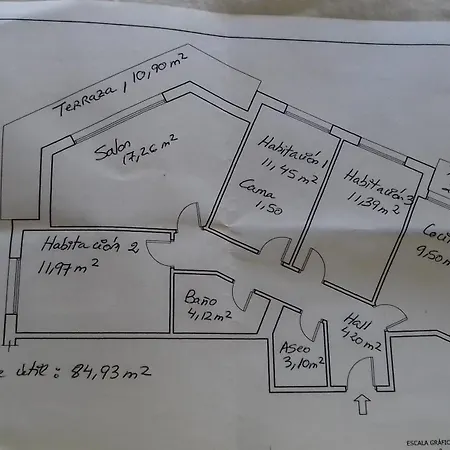 Terraza, 10,90 m²
Salon
17,26 m²
Habitación 1
11,45 m²
Cama
1,50
Habitación 3
11,39 m²
Coci
9,50 m²
Habitación 2
11,97 m²
Baño
4,12 m²
Hall
4,20 m²
Aseo
3,10 m²
útil: 84,93 m²
ESCALA GRÁFIC